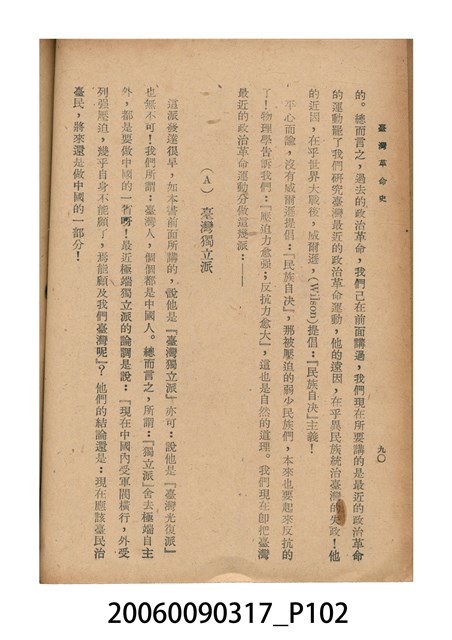 臺灣革命史
九〇
的。總而言之，過去的政治革命，我們已在前面講過，我們現在所要講的是最近的政治革命
的運動罷了我們研究臺灣最近的政治革命運動，他的遠因，在乎異民族統治臺灣的失政！他
的近因，在乎世界大戰後，威爾遜，(Wilson)提倡：『民族自决』主義！
平心而論，沒有威爾遜提倡：『民族自决』，那被壓迫的弱少民族們，本來也要起來反抗的
了！物理學告訴我們：『壓迫力愈强；反抗力愈大』，這也是自然的道理。我們現在卽把臺灣
最近的政治革命運動分做這幾派：——
（A）臺灣獨立派
這派發達很早，如本書前面所講的，說他是『臺灣獨立派』亦可：說他是『臺灣光復派』
也無不可！我們所謂：臺灣人，個個都是中國人。總而言之，所謂：『獨立派』舍去極端自主
外，都是要做中國的一省呀！最近極端獨立派的論調是說：『現在中國內受軍閥橫行，外受
列强壓迫，幾乎自身不能顧了，焉能顧及我們臺灣呢』？他們的結論還是：現在應該臺民治
臺民，將來還是做中國的一部分！
20060090317_P102